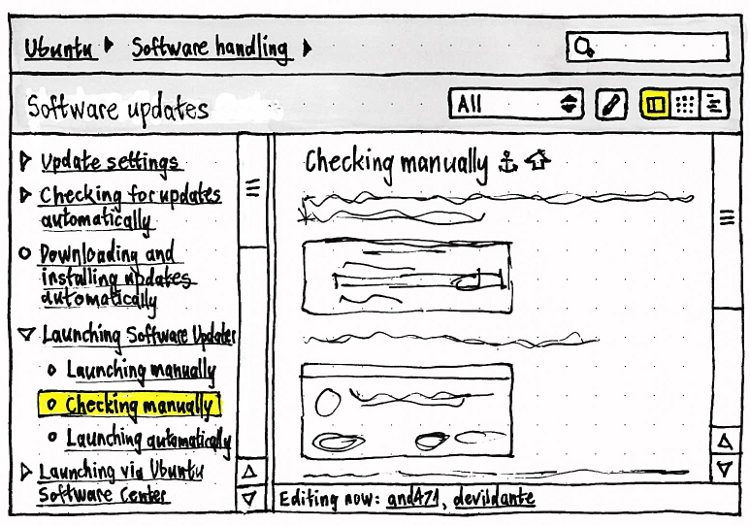 Ubuntu Software handling
Software updates
All
Update settings
Checking for updates
automatically
Downloading and
installing updates
automatically
Launching Software Updater
Launching manually
Checking manually
Launching automatically
Launching via Ubuntu
Software Center
Checking manually
Editing now: and471, devildante